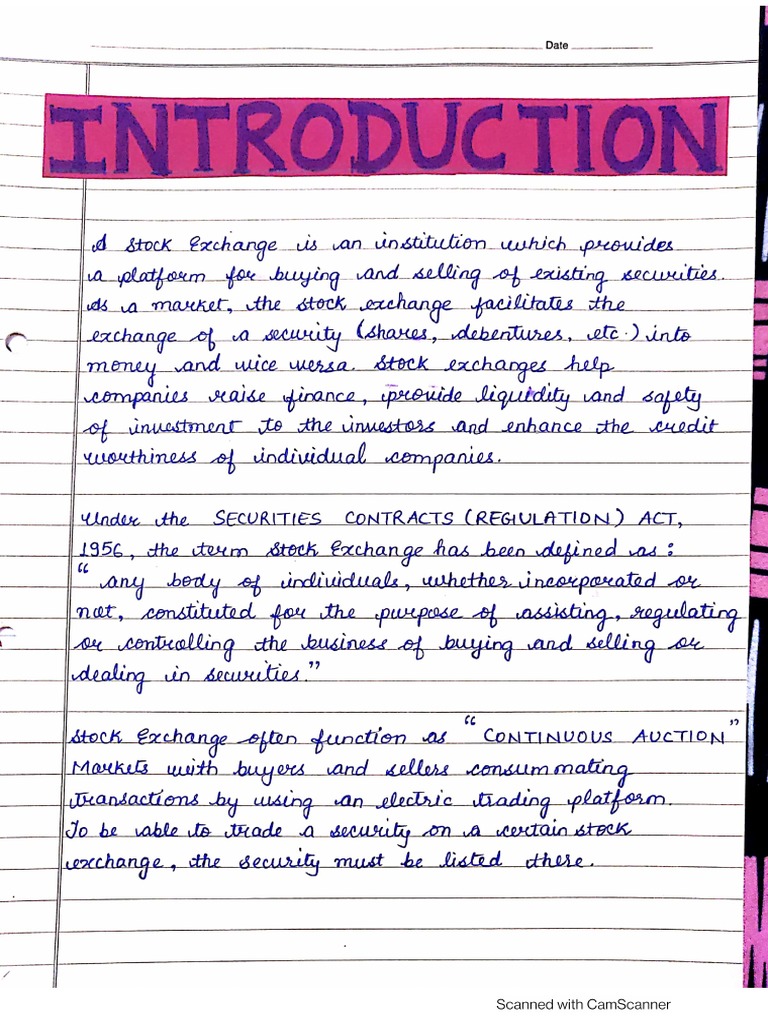 Date
INTRODUCTION
A Stock Exchange is an institution which provides
a platform for buying and selling of existing securities.
As a market, the stock exchange facilitates the
exchange of a security (shares, debentures, etc.) into
money and vice versa. Stock exchanges help
companies raise finance, provide liquidity and safety
of investment to the investors and enhance the credit
worthiness of individual companies.
Under the SECURITIES CONTRACTS (REGIULATION) ACT,
1956, the term Stock Exchange has been defined as:
"any body of individuals, whether incorporated or
not, constituted for the purpose of assisting, regulating
or controlling the business of buying and selling or
dealing in securities."
Stock Exchange often function as "CONTINUOUS AUCTION"
Markets with buyers and sellers consummating
transactions by using an electric trading platform.
To be able to trade a security on a certain stock
exchange, the security must be listed there.
Scanned with CamScanner